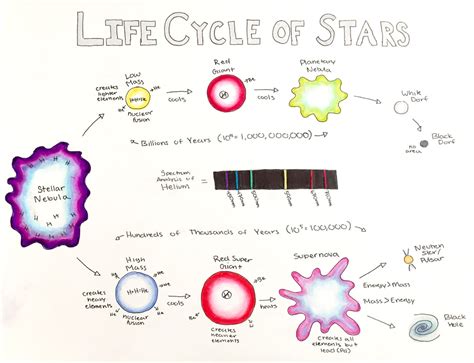 LIFE CYCLE OF STARS
Low
Mass
creates
lighter
elements
H+H=He
nuclear
fusion
cools
Red
Giant
He
He
cools
Planetary
Nebula
White
Dorf
Black
Dorf
no
area
Billions of Years (10⁹=1,000,000,000)
Stellar
Nebula
H
H
H
H
H
H
H
Spectrum
Analysis of
Helium
Hundreds of Thousands of Years (10⁵=100,000)
High
Mass
creates
heavy
elements
H+H=He
nuclear
fusion
cools
Red Super
Giant
He
He
creates
heavier
elements
hours
Supernova
creates all
elements but
lead (Pb)
Energy>Mass
Mass>Energy
Neutron
Star/
Pulsar
Black
Hole